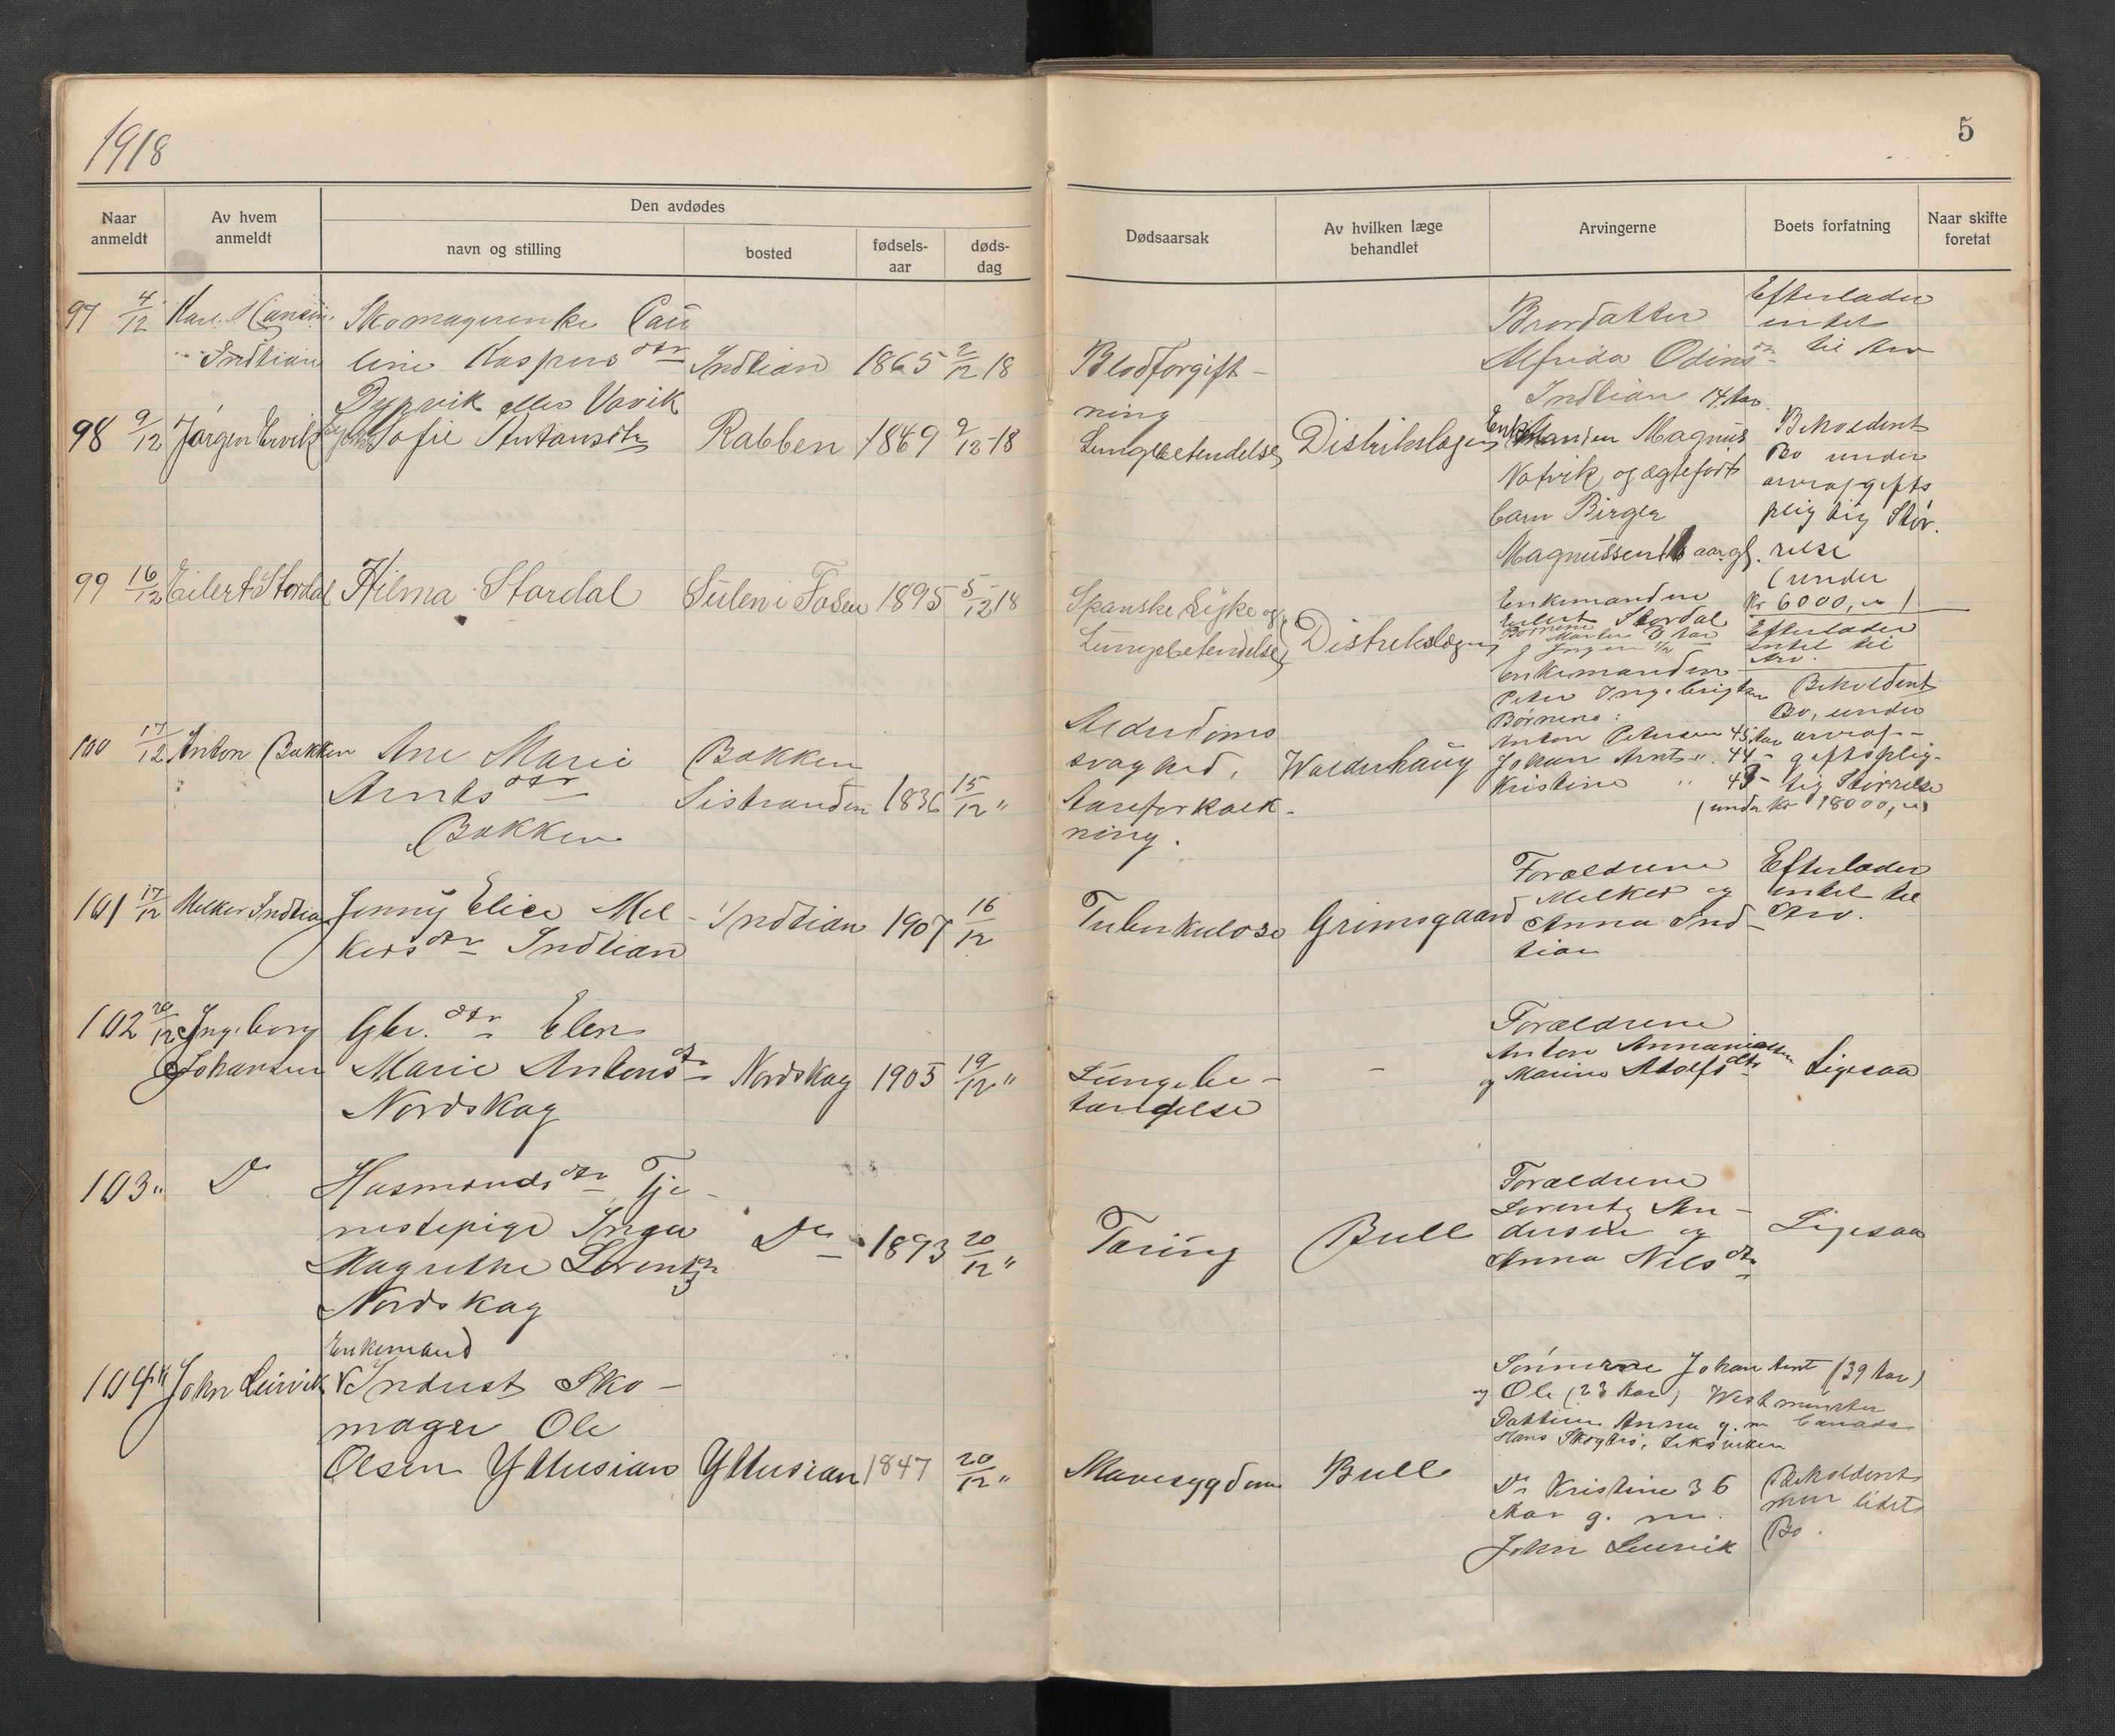 1918
5
Naar
anmeldt
Av hvem
anmeldt
Den avdødes
navn og stilling
bosted
fødsels-
aar
døds-
dag
Dødsaarsak
Av hvilken læge
behandlet
Arvingerne
Boets forfatning
Naar skifte
foretat
97 4/12 Karl Hansen
Indtian
Skomagerenke Pau
line Kaspers dtr
Dypvik eller Vavik
Indtian 1865 2/12 18
Blodforgift-
ning
Brordatter
Alfrida Odins dtr
Indtian 14 Aar.
Efterlader
intet
til Arv
98 9/12 Jørgen Ervik
Sofie Antonsdtr
Rabben 1869 9/12-18
Lungebetendelse
Distriktslægen
Enkemanden Magnus
Vatvik og ægtefødt
barn Birger
Magnussen 16 aar gl.
Beholdent
Bo under
arveafgifts
pligtig Stør.
relse
(under
Kr 6000,00)
99 16/12 Eilert Stordal
Hilma Stordal
Sulen i Fosen 1895 5/12 18
Spanske Syke og
Lungebetendelse
Distriktslægen
Enkemanden
Eilert Stordal
Børnene
Efterlader
intet til
Arv.
100 17/12 Anton Bakken
Ane Marie
Arnts dtr
Bakken
Bakken
Sistranden 1836 15/12 "
Alderdoms
svaghed,
Aareforkalk-
ning.
Walderhaug
Enkemanden
Peter Ingebrigtsen
Børnene:
Anton Petersen 45 Aar
Johan Arnt " 44 -
Kristine " 43 -
Beholdent
Bo, under
arveaf-
giftsplig-
tig Størrelse
(under kr 18000,00)
101 17/12 Melker Indtian
Jenny Elise Mel-
kers dtr Indtian
Indtian 1907 16/12
Tuberkulose
Grimsgaard
Forældrene
Melker og
Anna Ind-
tian
Efterlader
intet til
Arv.
102 20/12 Ingeborg
Johansen
Gbr. dtr Elen
Marie Antons dtr
Nordskag
Nordskag 1905 19/12 "
Lungebe-
tændelse
-
Forældrene
Anton Annaniassen
og Marine Adolfs dtr
Ligesaa
103 " Do
Husmands dtr Tje-
nestepige Inga
Magrethe Lorentz dtr
Nordskag
Do 1893 20/12 "
Tæring
Bull
Forældrene
Lorentz An-
dersen og
Anna Nils dtr
Ligesaa
104 John Leirvik
Enkemand
Indust Sko-
mager Ole
Olsen Yttusian
Yttusian 1847 20/12 "
Mavesygdom
Bull
Sønnerne Johan Arnt (39 Aar)
og Ole (23 Aar) Westminster
Canada
Datteren Anna g. m.
Hans Skogtrø, Leksviken
Do Kristine 36
Aar g. m.
John Leirvik
Beholdent
men lidet
Bo.